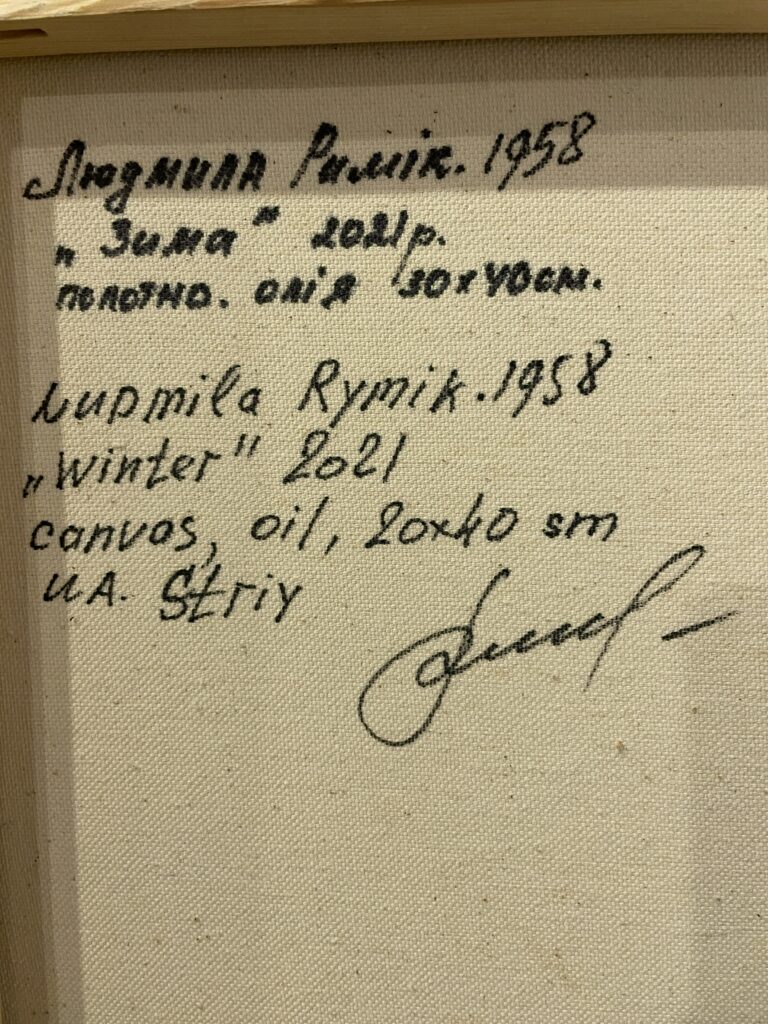 Людмила Римік. 1958
„Зима" 2021р.
полотно. олія 30х40см.
Lupmila Rymik. 1958
„Winter" 2021
canvas, oil, 20x40 sm
UA. Striy